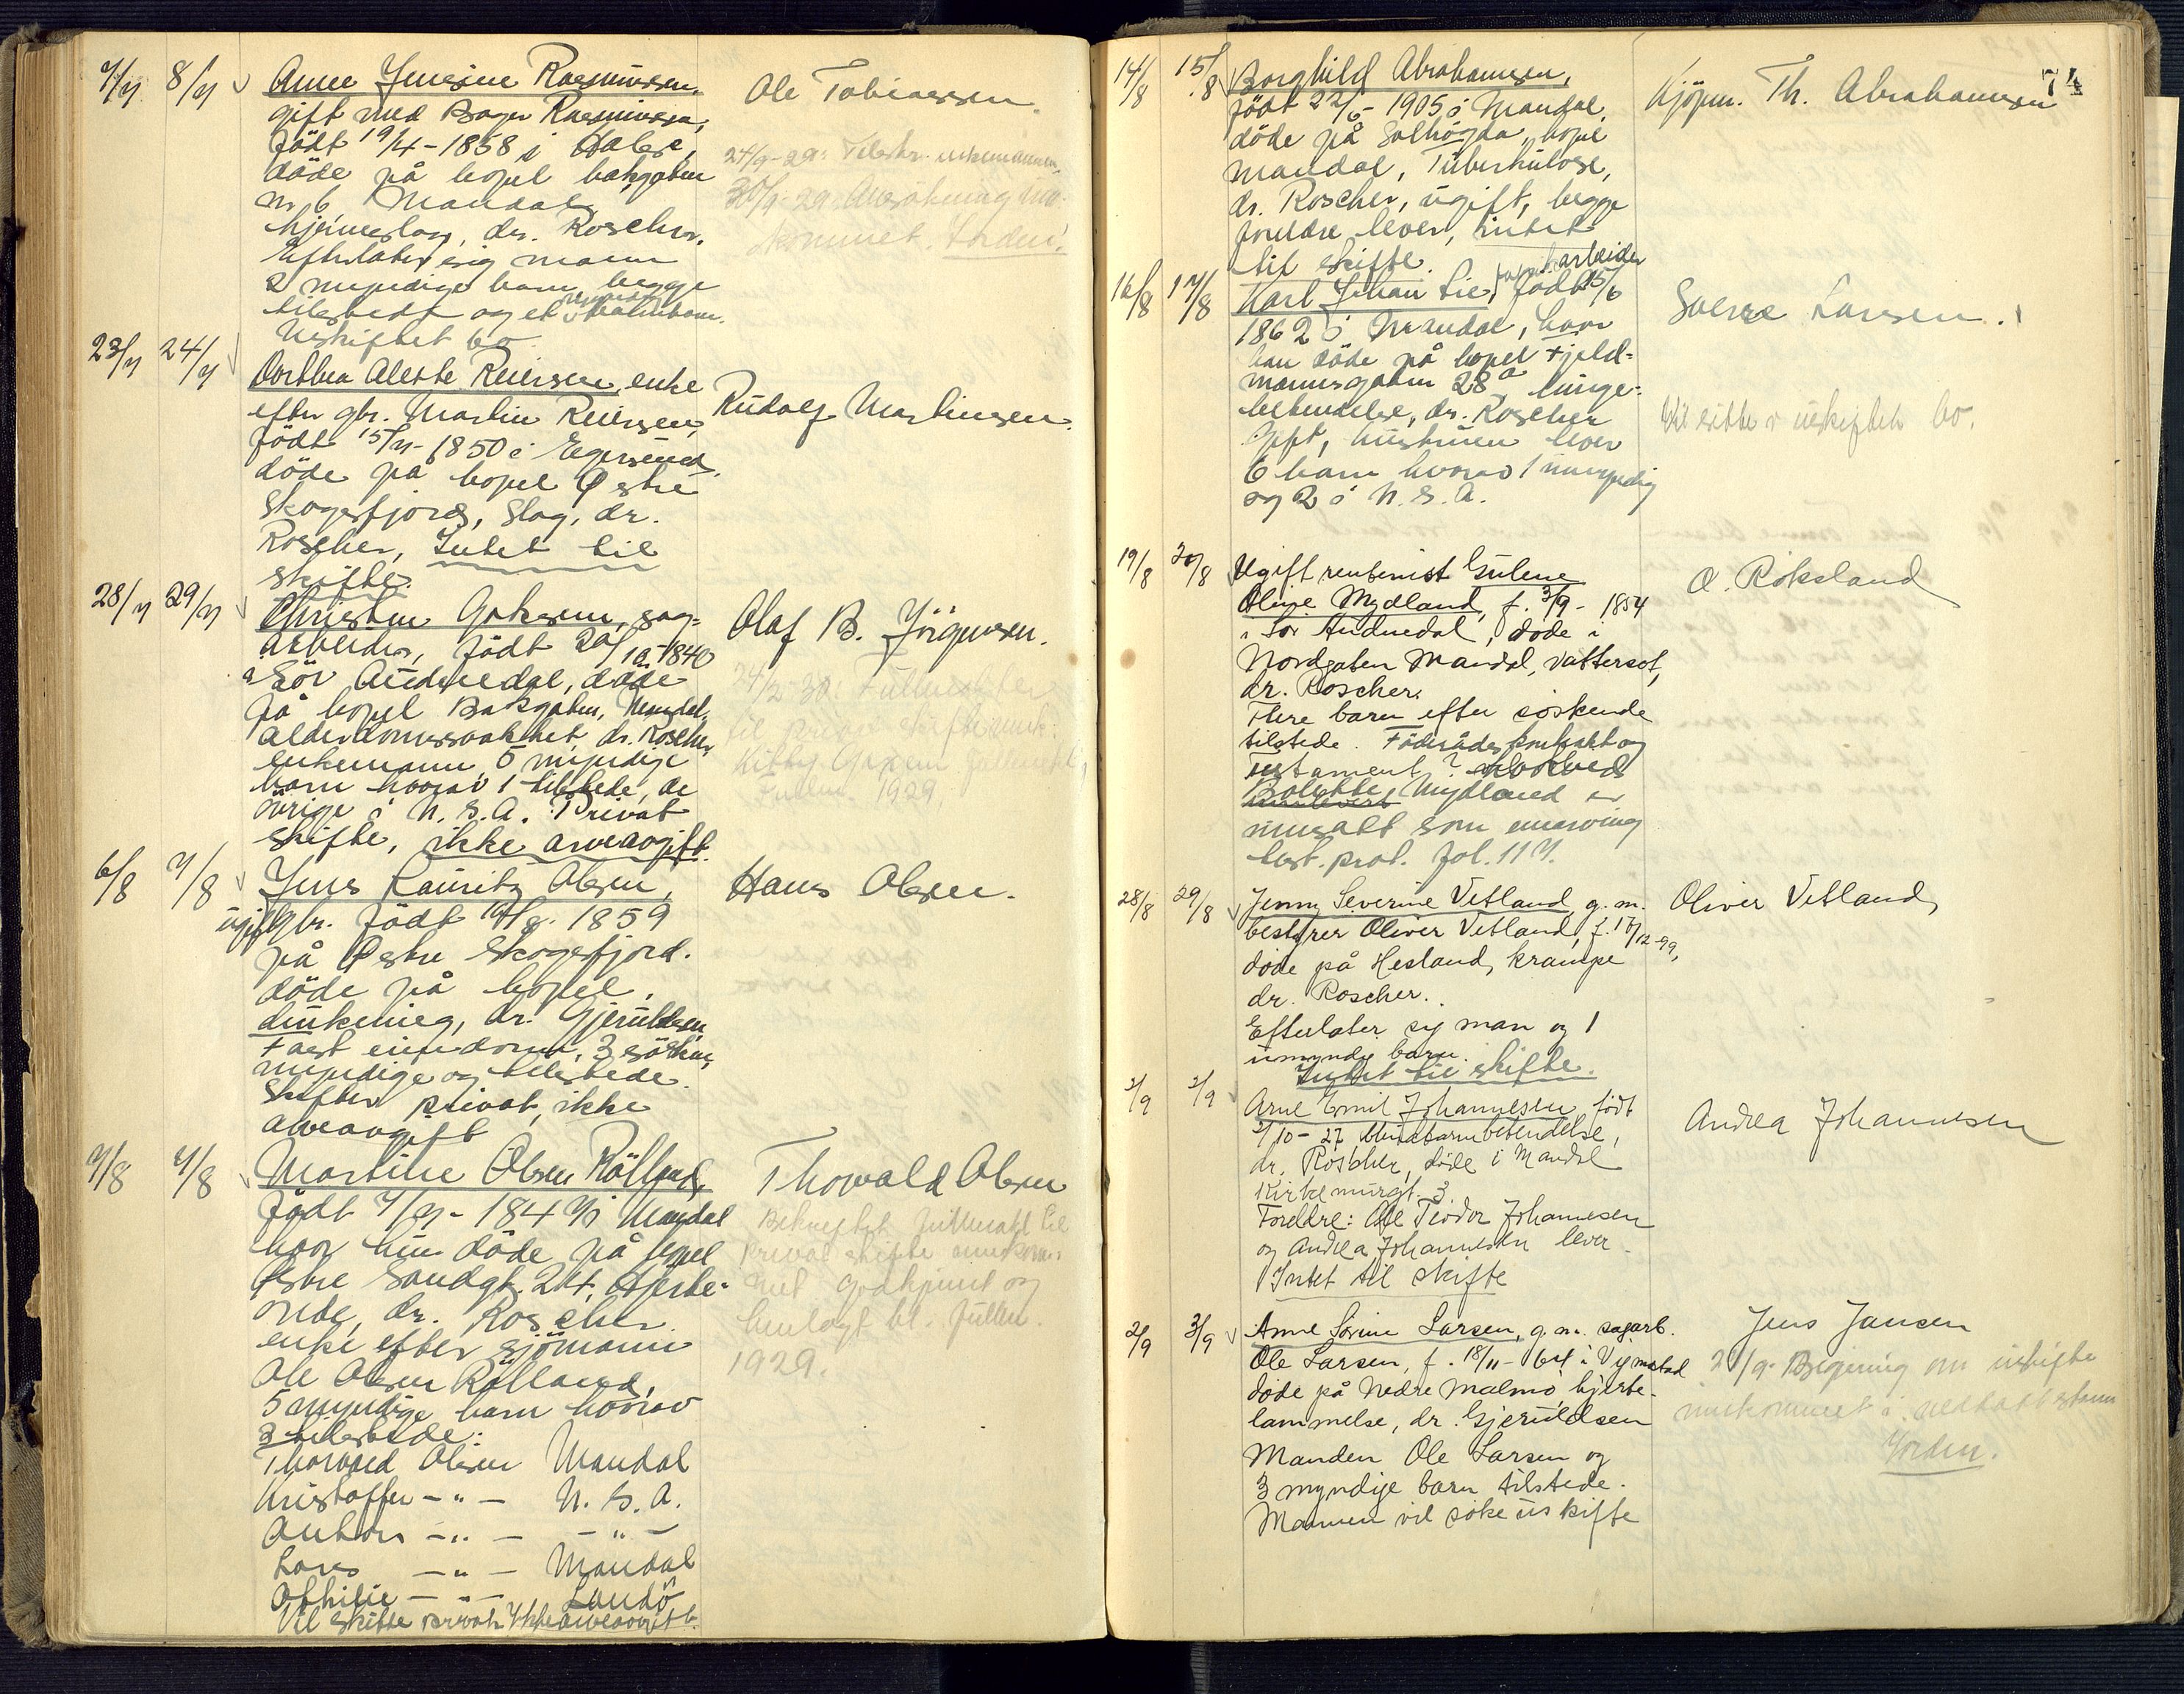 7/7 8/7 Anne Jensine Rasmussen,
gift med Bager Rasmussen,
født 19/4-1858 i
døde på bopel bakgaten
nr. 6, Mandal,
hjerneslag, dr. Roscher.
Efterlater sig mann
2 myndige barn, begge
tilstede og et
Uskiftet bo.
Ole Tobiassen.
24/9-29:
30/9-29. Ansøkning inn-
kommet. Iorden.
23/7 24/7 Dorthea Aleste Reiersen, enke
efter gbr. Martin Reiersen,
født 15/7-1850 i Egersund,
døde på bopel Østre
Skogsfjord, Slag, dr.
Roscher, Intet til
skifte.
Rudolf Martinsen.
28/7 29/7 sag-
arbeider, født 20/10-1840
i Sör Audnedal, døde
på bopel Bakgaten, Mandal,
alderdomssvakhet, dr. Roscher,
enkemann, 5 myndige
barn hvorav 1 tilstede, de
øvrige i U.S.A. Privat
skifte, ikke arveavgift.
Olaf B. Jörgensen.
24/2-30. Fullmakter
til privat skifte innk.
1929.
6/8 7/8 Jens Lauritz Olsen,
ugift gbr. født 1859
på Østre Skogsfjord.
døde på bopel,
drukning, dr. Gjeruldsen,
Fast eiendom, 3 søsken,
myndige og tilstede.
Skifter privat, ikke
arveavgift
Hans Olsen.
7/8 7/8 Martine Olsen Rölland,
født 7/7-1847 i Mandal
hvor hun døde på bopel
Østre Sandgt. 24, Hjerte-
onde, dr. Roscher.
enke efter sjömann
Ole Olsen Rölland,
5 myndige barn hvorav
3 tilstede:
Thorvald Olsen Mandal
Kristoffer -"- U.S.A.
Anton -"- -"-
Lars -"- Mandal
Othilie -"- Landö
Vil skifte privat Ikke arveavgift.
Thorvald Olsen
Bekreftet fullmakt til
privat skifte innkom-
met godkjent og
henlagt bl. fullm.
1929.
74
14/8 15/8 Borghild Abrahamsen,
født 22/6-1905 i Mandal,
døde på Solhøgda, bopel
Mandal, Tuberkulose,
dr. Roscher, ugift, begge
foreldre lever, Intet
til skifte.
Kjøpm. Th. Abrahamsen
16/8 17/8 Karl Johan Lie, arbeider født 15/6
1862 i Mandal, hvor
han døde på bopel Fjeld-
mannsgaten 28a lunge-
betendelse, dr. Roscher
Gift, hustruen lever
6 barn hvorav 1 umyndig
og 2 i U.S.A.
Sverre Larsen.
Vil sitte i uskiftet bo.
19/8 20/8 Ugift rentenist Gulene
Oline Mydland, f. 3/9-1854
i Sør Audnedal, døde i
Nordgaten Mandal, Vattersot,
dr. Roscher.
Flere barn efter søskende
tilstede. Föderådskontrakt og
Testament?
Bolette Mydland er
innsatt som enearving
test. prot. fol. 117.
O. Röksland
28/8 29/8 Jenny Severine Vetland, g.m.
bestyrer Oliver Vetland, f. 17/12-99,
døde på Hesland, krampe
dr. Roscher.
Efterlater sig man og 1
umyndig barn.
Intet til skifte.
Oliver Vetland
2/9 2/9 Arne Emil Johannesen født
2/10-27 Blindtarmbetendelse,
dr. Roscher, døde i Mandal
Kirkemurgt. 3.
Foreldre: Ole Teodor Johannesen
og Andrea Johannesen lever.
Intet til skifte
Andrea Johannesen
2/9 3/9 Anne Sorine Larsen, g.m. sagarb.
Ole Larsen, f. 18/11-64 i Vigmostad
døde på Nedre Malmö, hjerte-
lammelse, dr. Gjeruldsen
Manden Ole Larsen og
3 myndige barn tilstede.
Mannen vil søke uskifte
Jens Jansen
20/9. Begjæring om uskifte
innkommet i
Iorden.